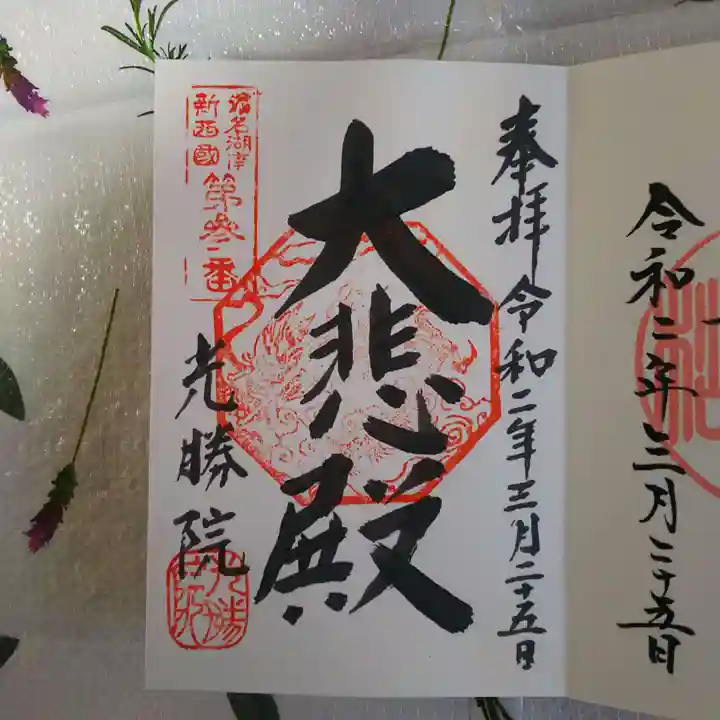 令和二年三月二十五日
奉拝 令和二年三月二十五日
大悲殿
濱名湖岸
新西國
第参二番
光勝院